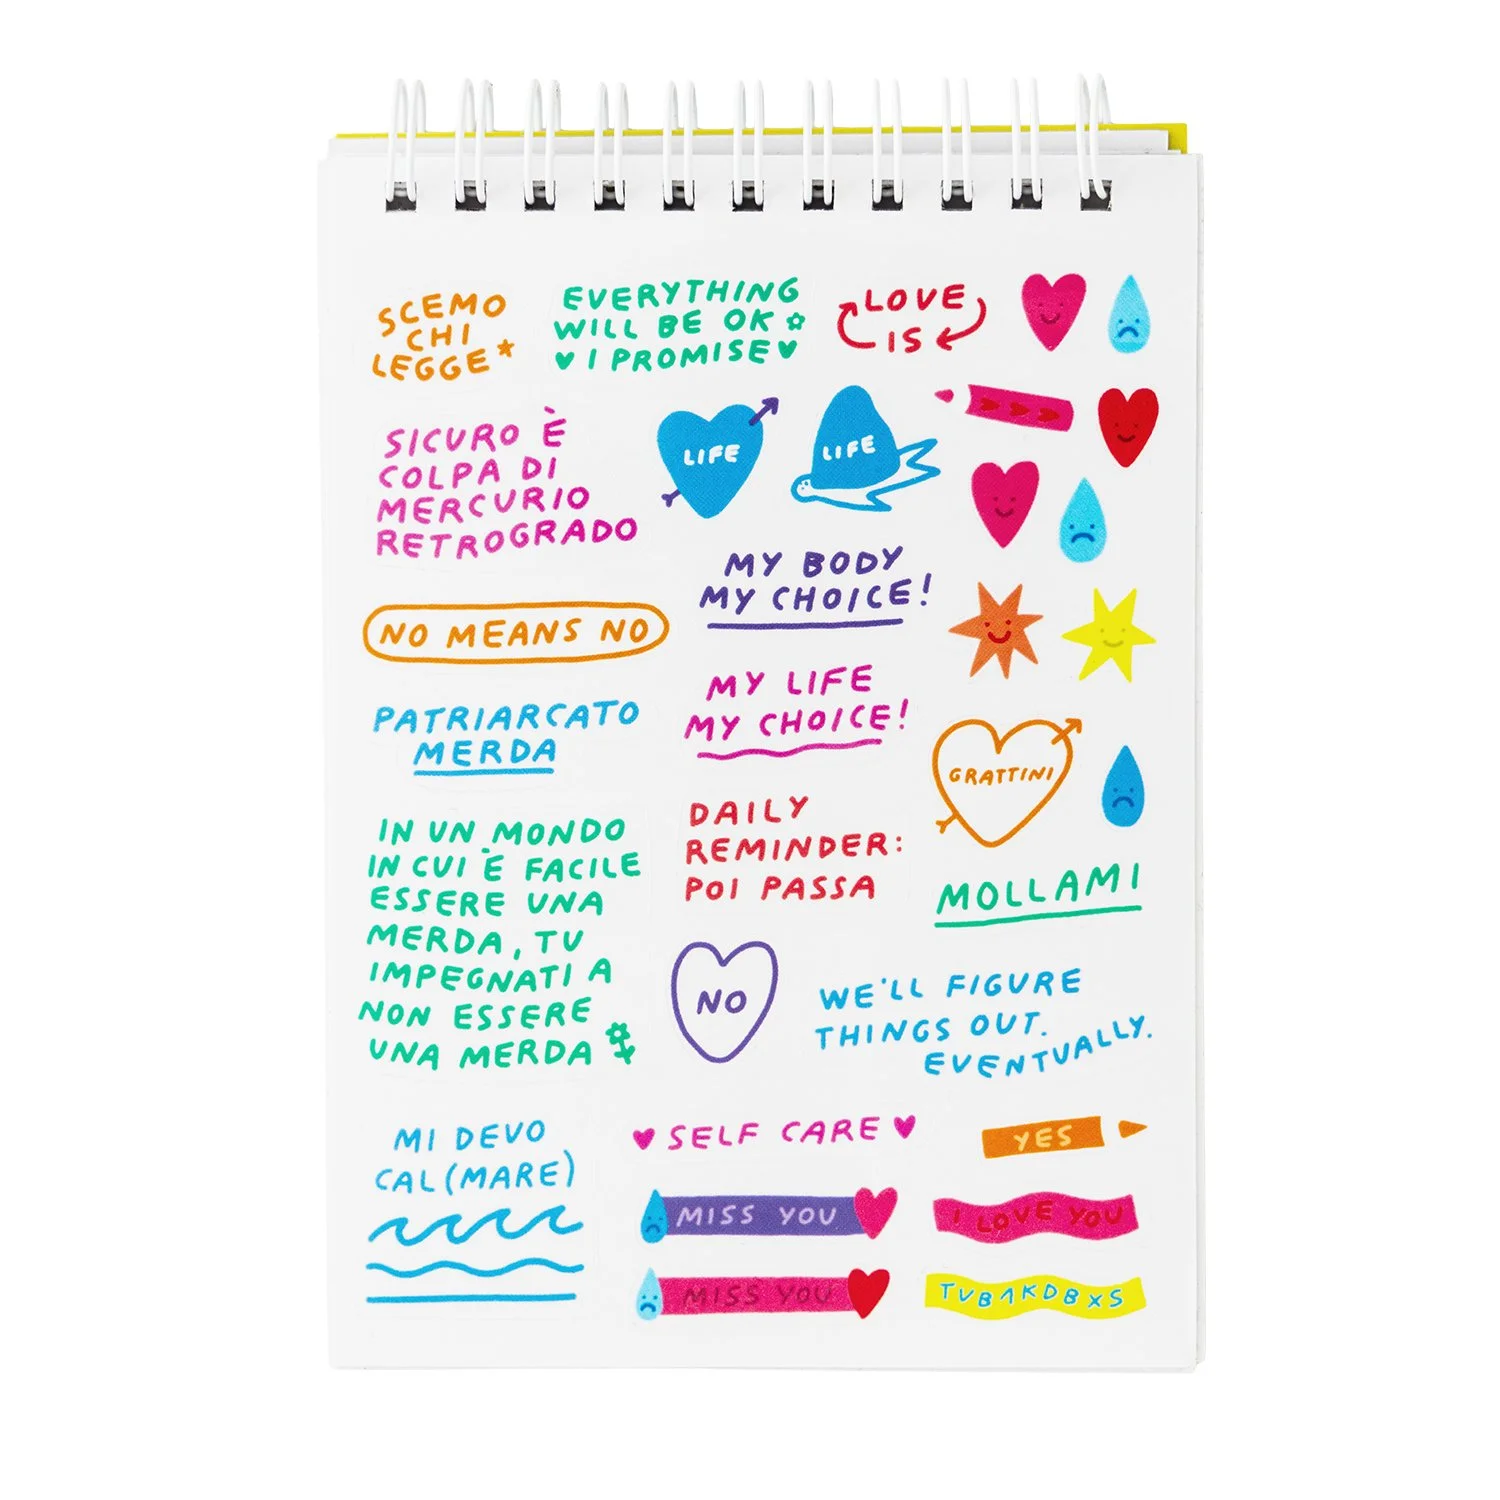 SCEMO
CHI
LEGGE*
EVERYTHING
WILL BE OK
I PROMISE
LOVE
IS
SICURO È
COLPA DI
MERCURIO
RETROGRADO
LIFE
LIFE
MY BODY
MY CHOICE!
NO MEANS NO
MY LIFE
MY CHOICE!
PATRIARCATO
MERDA
GRATTINI
DAILY
REMINDER:
POI PASSA
IN UN MONDO
IN CUI È FACILE
ESSERE UNA
MERDA, TU
IMPEGNATI A
NON ESSERE
UNA MERDA
MOLLAMI
NO
WE'LL FIGURE
THINGS OUT.
EVENTUALLY.
MI DEVO
CAL(MARE)
SELF CARE
YES
MISS YOU
I LOVE YOU
MISS YOU
TVB1KDBXS